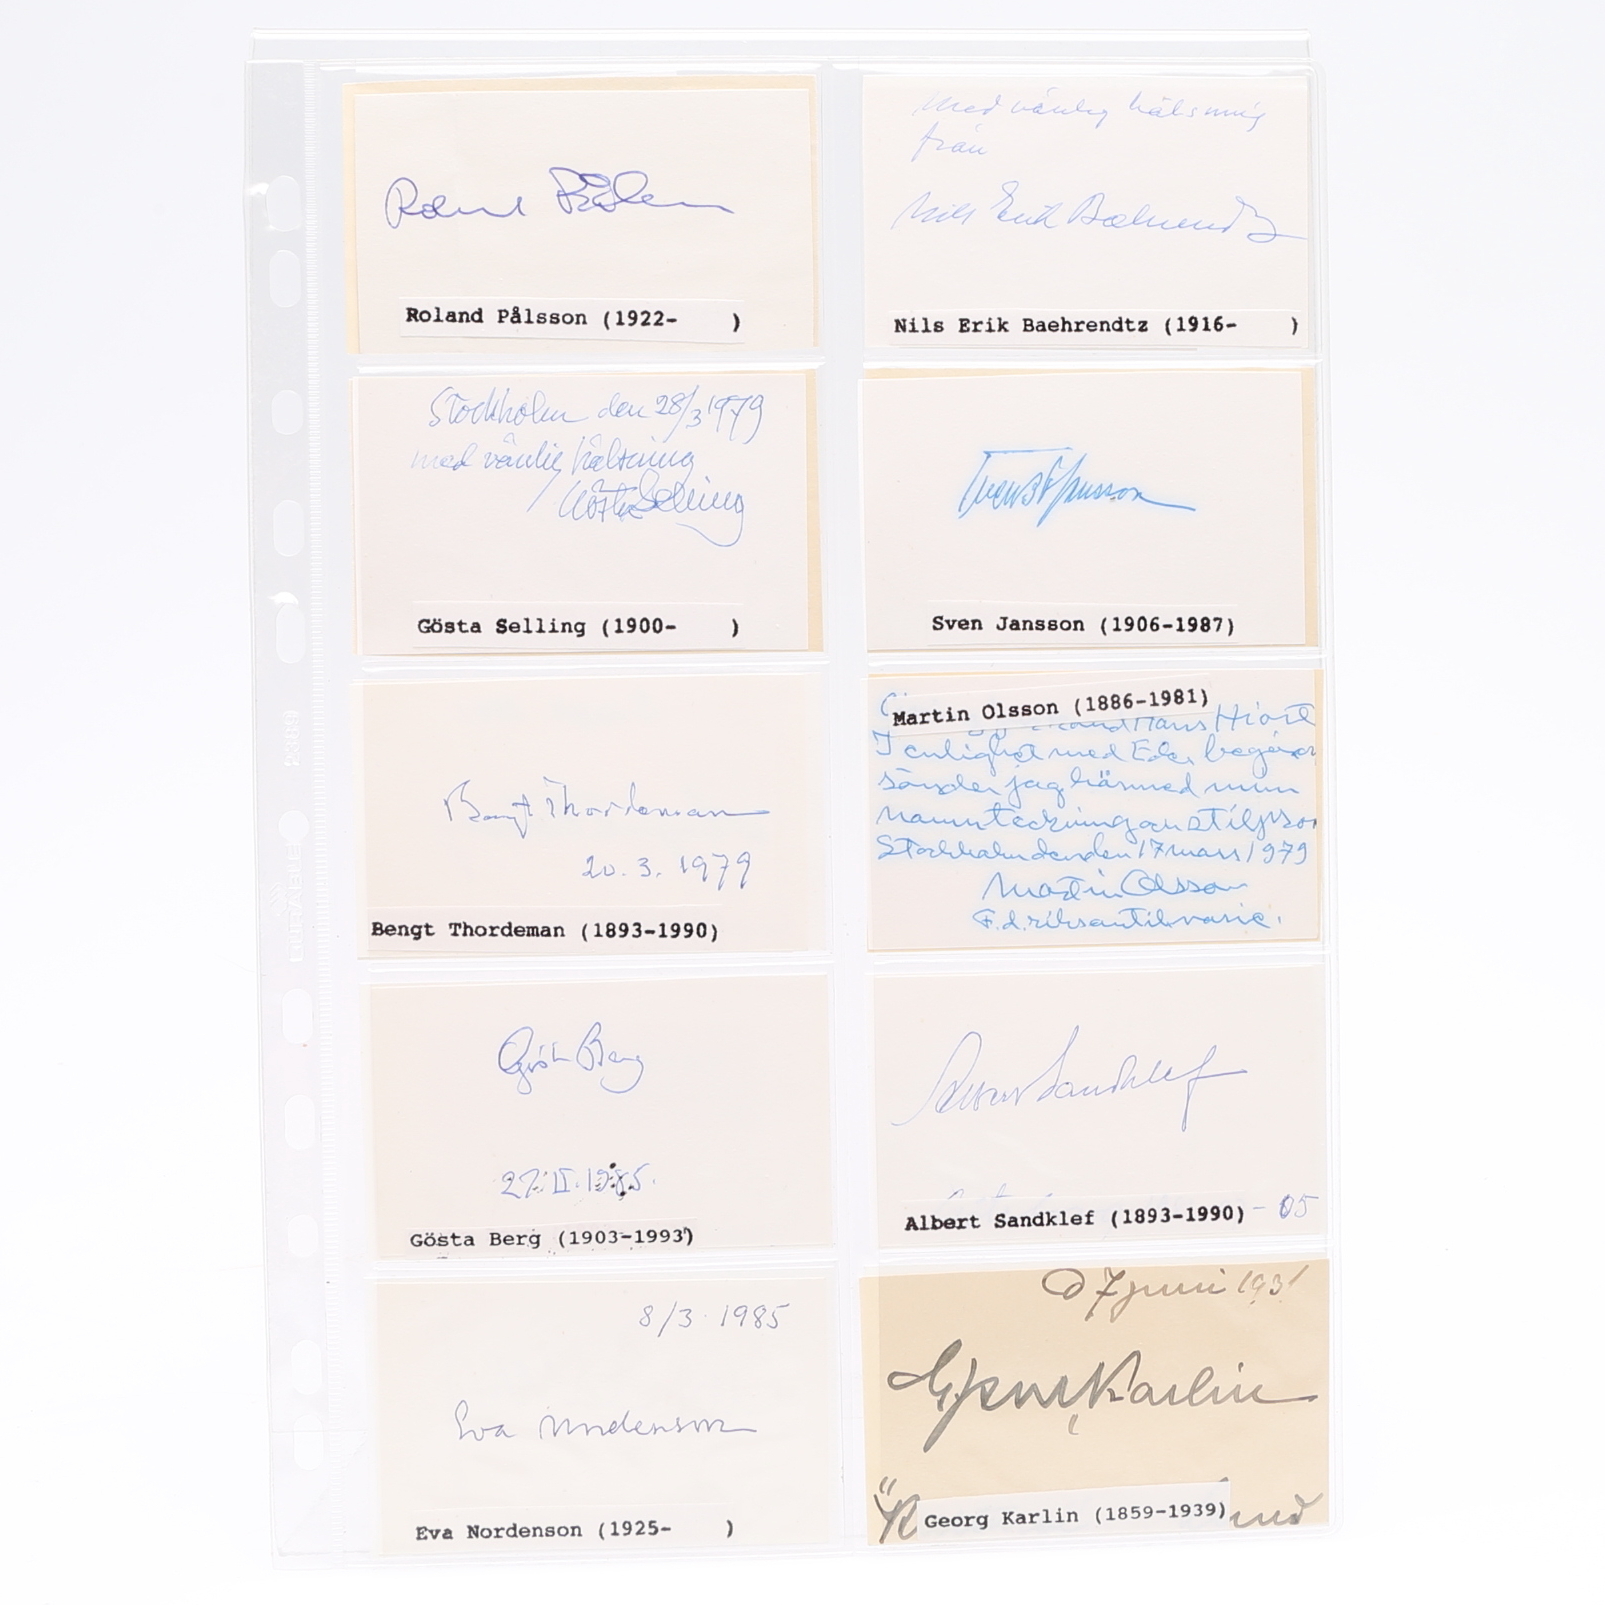 Roland Pålsson
Roland Pålsson (1922- )
Med vänlig hälsning
från
Nils Erik Baehrendtz
Nils Erik Baehrendtz (1916- )
Stockholm den 28/3 1979
med vänlig hälsning
Gösta Selling
Gösta Selling (1900- )
Sven B F Jansson
Sven Jansson (1906-1987)
Bengt Thordeman
20.3.1979
Bengt Thordeman (1893-1990)
Martin Olsson (1886-1981)
Hans Hiort
I enlighet med Eder begäran
sänder jag härmed min
namnteckning
Stockholm den 17 mars 1979
Martin Olsson
F.d. riksantikvarie.
Gösta Berg
27.II.1985.
Gösta Berg (1903-1993)
Albert Sandklef
Albert Sandklef (1893-1990) - 05
8/3 1985
Eva Nordenson
Eva Nordenson (1925- )
d 7 juni 1931
G J:son Karlin
Georg Karlin (1859-1939)
DURABLE
2389